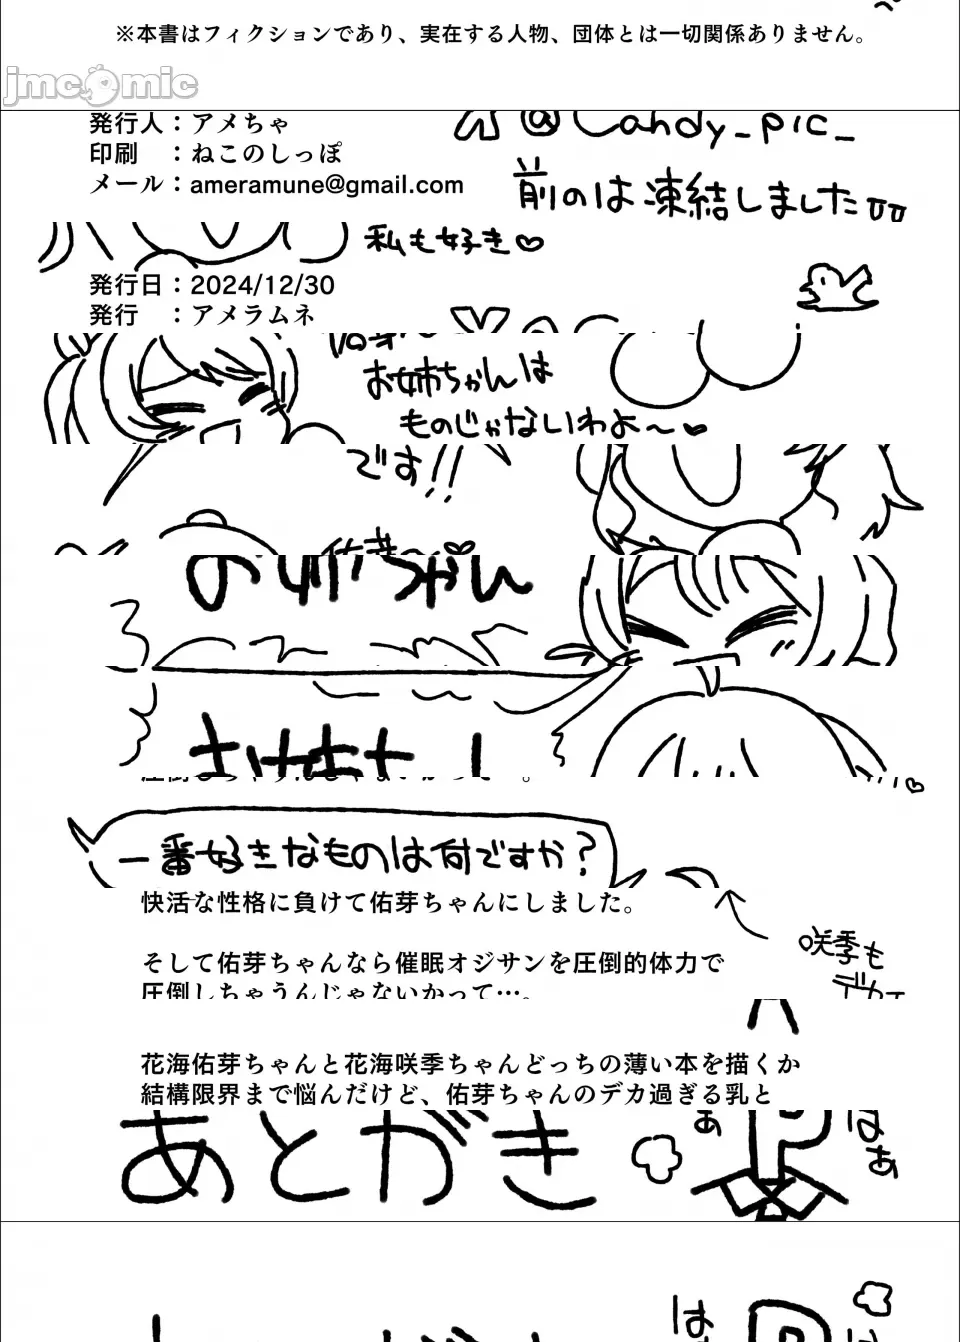 ※本書はフィクションであり、実在する人物、団体とは一切関係ありません。
jmcomic
発行人：アメちゃ
印刷　：ねこのしっぽ
メール：ameramune@gmail.com
@Candy_pic_
前のは凍結しました
私も好き♡
発行日：2024/12/30
発行　：アメラムネ
お姉ちゃんは
ものじゃないわよ〜♥
です!!
一番好きなものは何ですか？
快活な性格に負けて佑芽ちゃんにしました。
咲季も
デカ
そして佑芽ちゃんなら催眠オジサンを圧倒的体力で
圧倒しちゃうんじゃないかって…。
花海佑芽ちゃんと花海咲季ちゃんどっちの薄い本を描くか
結構限界まで悩んだけど、佑芽ちゃんのデカ過ぎる乳と
あとがき
P
はぁ